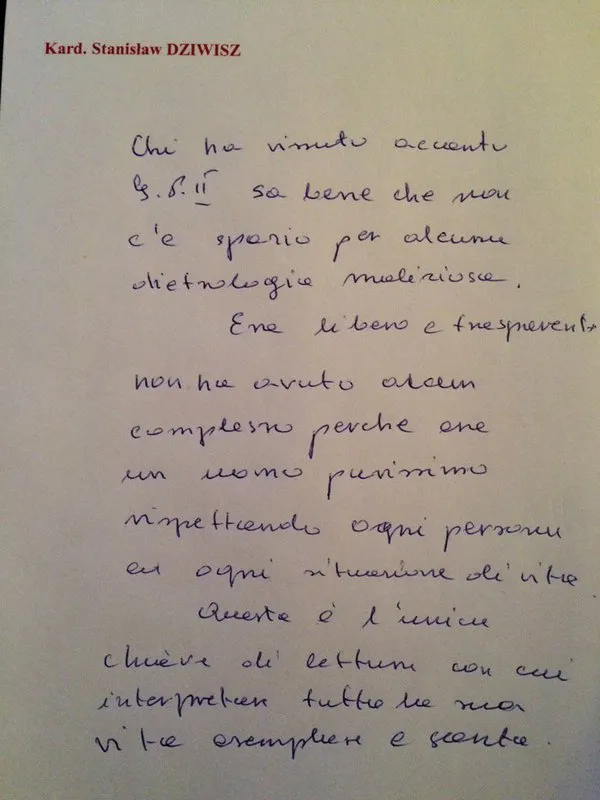 Kard. Stanisław DZIWISZ
Chi ha vissuto accanto
G. P. II sa bene che non
c'è spazio per alcuna
dietrologia maliziosa.
Era libero e trasparente
non ha avuto alcun
complesso perche era
un uomo purissimo
rispettando ogni persona
ed ogni situazione di vita
Questa è l'unica
chiave di lettura con cui
interpretare tutta la sua
vita esemplare e santa.